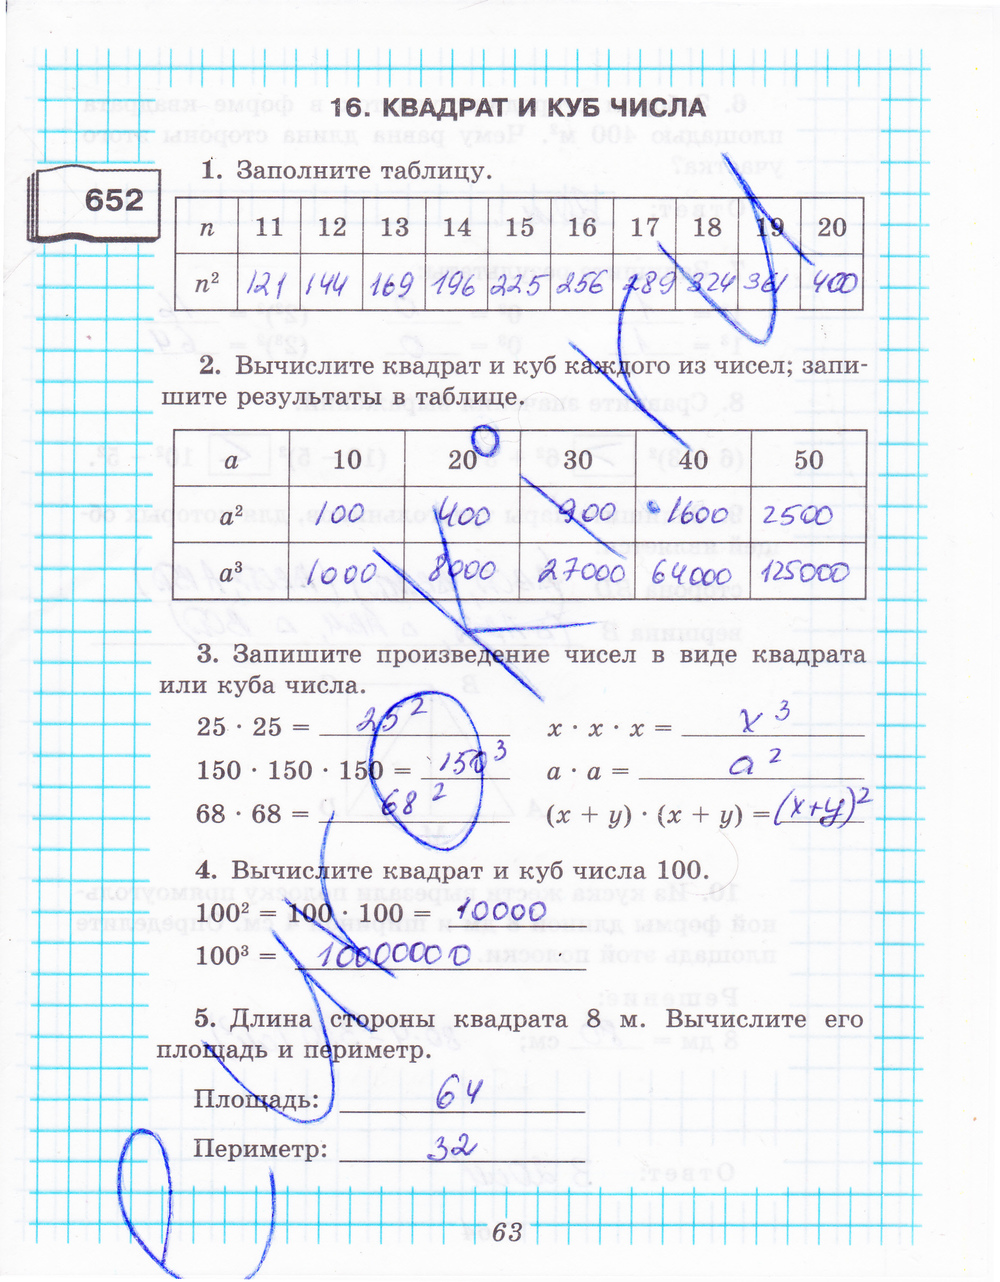 16. КВАДРАТ И КУБ ЧИСЛА
652
1. Заполните таблицу.
n 11 12 13 14 15 16 17 18 19 20
n² 121 144 169 196 225 256 289 324 361 400
2. Вычислите квадрат и куб каждого из чисел; запи-
шите результаты в таблице.
a 10 20 30 40 50
a² 100 400 900 1600 2500
a³ 1000 8000 27000 64000 125000
3. Запишите произведение чисел в виде квадрата
или куба числа.
25 · 25 = 25² x · x · x = x³
150 · 150 · 150 = 150³ a · a = a²
68 · 68 = 68² (x + y) · (x + y) = (x+y)²
4. Вычислите квадрат и куб числа 100.
100² = 100 · 100 = 10000
100³ = 10000000
5. Длина стороны квадрата 8 м. Вычислите его
площадь и периметр.
Площадь: 64
Периметр: 32
63